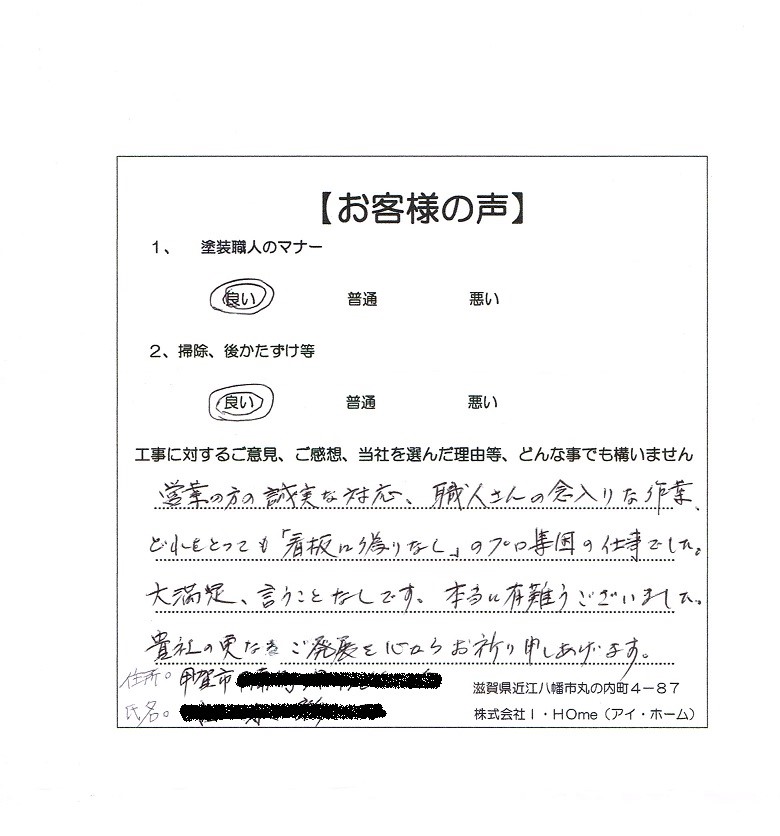 【お客様の声】
1、 塗装職人のマナー
良い 普通 悪い
2、掃除、後かたずけ等
良い 普通 悪い
工事に対するご意見、ご感想、当社を選んだ理由等、どんな事でも構いません
営業の方の誠実な対応、職人さんの念入りな作業、
どれをとっても「看板に偽りなし」のプロ集団の仕事でした。
大満足、言うことなしです。本当に有難うございました。
貴社の更なるご発展を心からお祈り申しあげます。
住所。甲賀市
氏名。
滋賀県近江八幡市丸の内町4-87
株式会社I・HOme(アイ・ホーム)